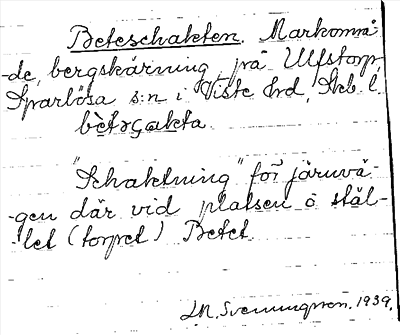 Beteschakten. Markområ-
-de, bergskärning, på Ulfstorp,
Sparlösa s:n i Viste hrd, Skb l.
bètəʂakta
"Schaktning" för järnvä-
-gen där vid platsen o stäl-
-let (torpet) Betet.
I.M. Svenningsson. 1939.